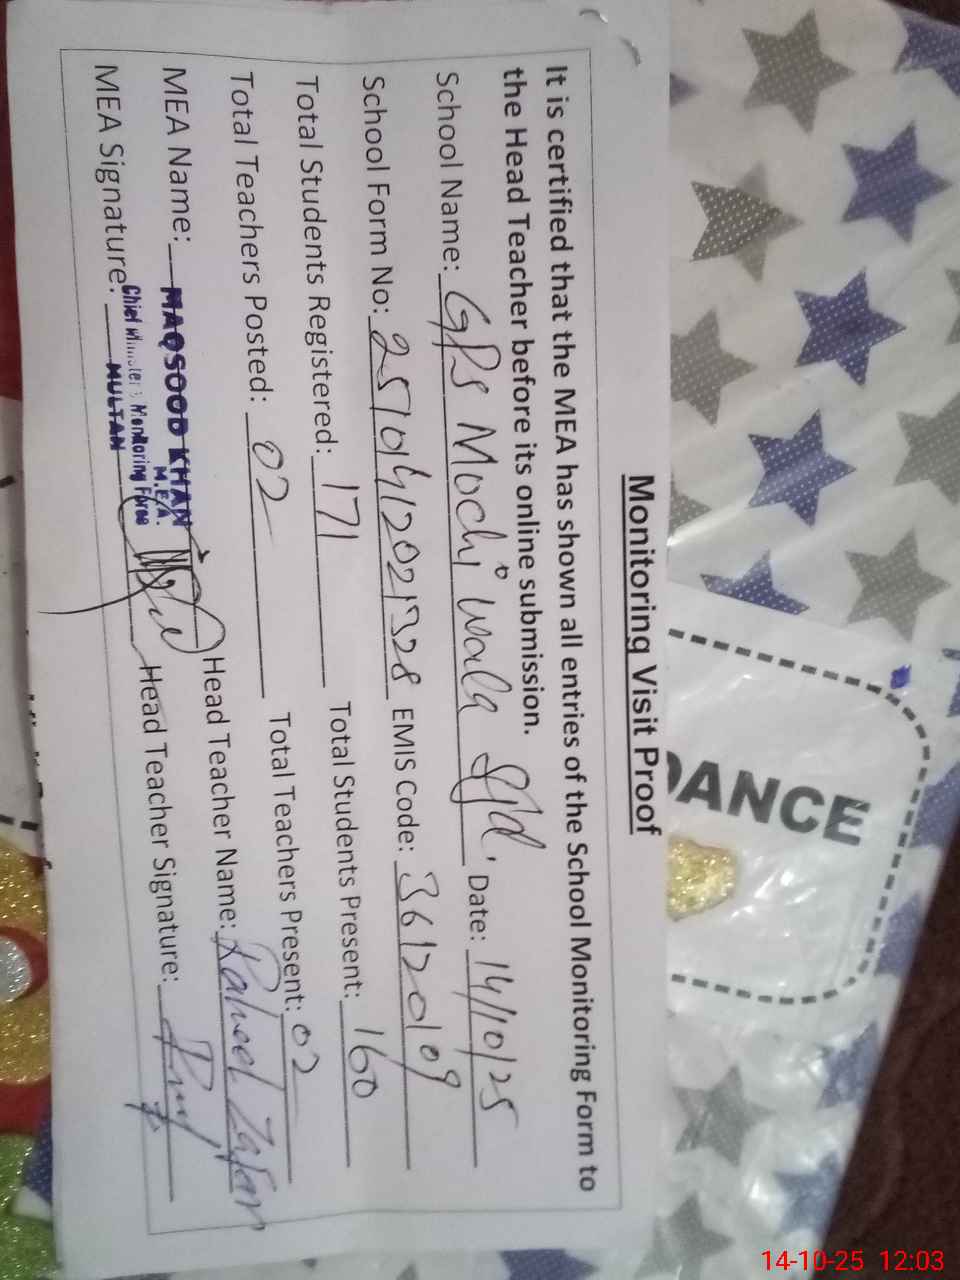 Monitoring Visit Proof
It is certified that the MEA has shown all entries of the School Monitoring Form to
the Head Teacher before its online submission.
School Name: GPS Mochi wala Date: 14/10/25
School Form No: EMIS Code: 36120109
Total Students Registered: 171 Total Students Present: 160
Total Teachers Posted: 02 Total Teachers Present: 02
MEA Name: MAQSOOD KHAN Head Teacher Name: Zafar
M.E.A.
Chief Minister's Monitoring Force
MULTAN
MEA Signature: Head Teacher Signature:
DANCE
14-10-25 12:03